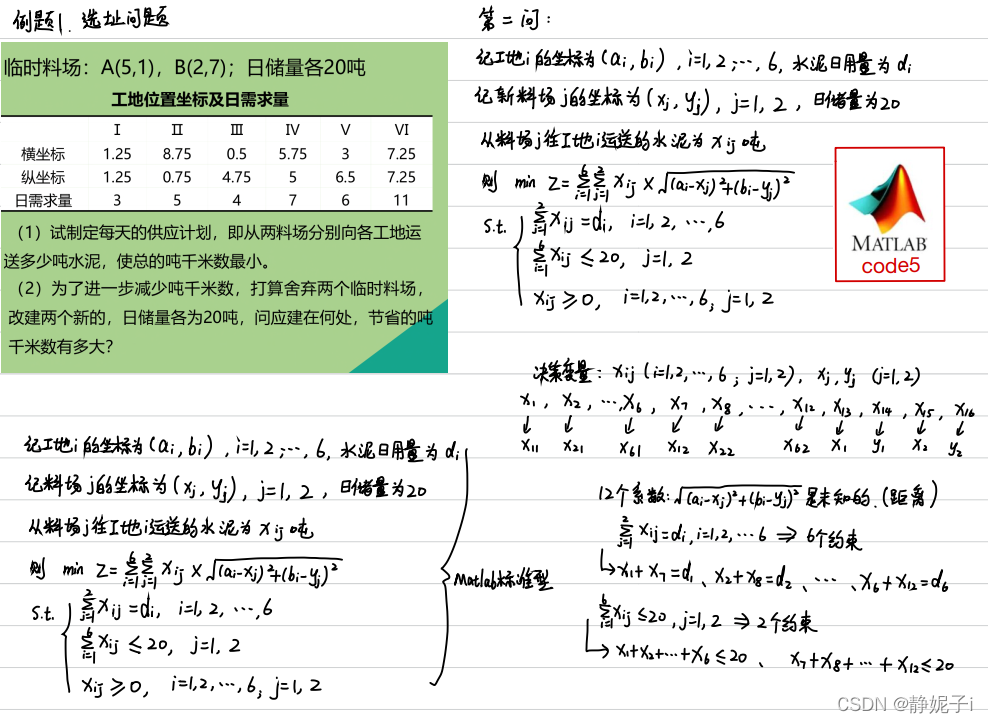 例题1. 选址问题
临时料场：A(5,1)，B(2,7)；日储量各20吨
工地位置坐标及日需求量
I II III IV V VI
横坐标 1.25 8.75 0.5 5.75 3 7.25
纵坐标 1.25 0.75 4.75 5 6.5 7.25
日需求量 3 5 4 7 6 11
（1）试制定每天的供应计划，即从两料场分别向各工地运
送多少吨水泥，使总的吨千米数最小。
（2）为了进一步减少吨千米数，打算舍弃两个临时料场，
改建两个新的，日储量各为20吨，问应建在何处，节省的吨
千米数有多大？
记工地i的坐标为(ai,bi), i=1,2,…,6, 水泥日用量为di
记料场j的坐标为(xj,yj), j=1,2, 日储量为20
从料场j往工地i运送的水泥为xij吨
则 min Z=∑(i=1→6)∑(j=1→2) xij × √((ai-xj)²+(bi-yj)²)
s.t. { ∑(j=1→2) xij=di, i=1,2,…,6
∑(i=1→6) xij≤20, j=1,2
xij≥0, i=1,2,…,6; j=1,2
Matlab标准型
第二问：
记工地i的坐标为(ai,bi), i=1,2,…,6, 水泥日用量为di
记新料场j的坐标为(xj,yj), j=1,2, 日储量为20
从料场j往工地i运送的水泥为xij吨
则 min Z=∑(i=1→6)∑(j=1→2) xij × √((ai-xj)²+(bi-yj)²)
s.t. { ∑(j=1→2) xij=di, i=1,2,…,6
∑(i=1→6) xij≤20, j=1,2
xij≥0, i=1,2,…,6; j=1,2
MATLAB
code5
决策变量：xij (i=1,2,…,6; j=1,2), xj,yj (j=1,2)
x1, x2, …,x6, x7, x8, …, x12, x13, x14, x15, x16
↓ ↓ ↓ ↓ ↓ ↓ ↓ ↓ ↓ ↓
x11 x21 x61 x12 x22 x62 x1 y1 x2 y2
12个系数：√((ai-xj)²+(bi-yj)²) 是未知的.(距离)
∑(j=1→2) xij=di, i=1,2,…6 ⇒ 6个约束
→x1+x7=d1、x2+x8=d2、…、x6+x12=d6
∑(i=1→6) xij≤20, j=1,2 ⇒ 2个约束
→x1+x2+…+x6≤20、x7+x8+…+x12≤20
CSDN @静妮子i